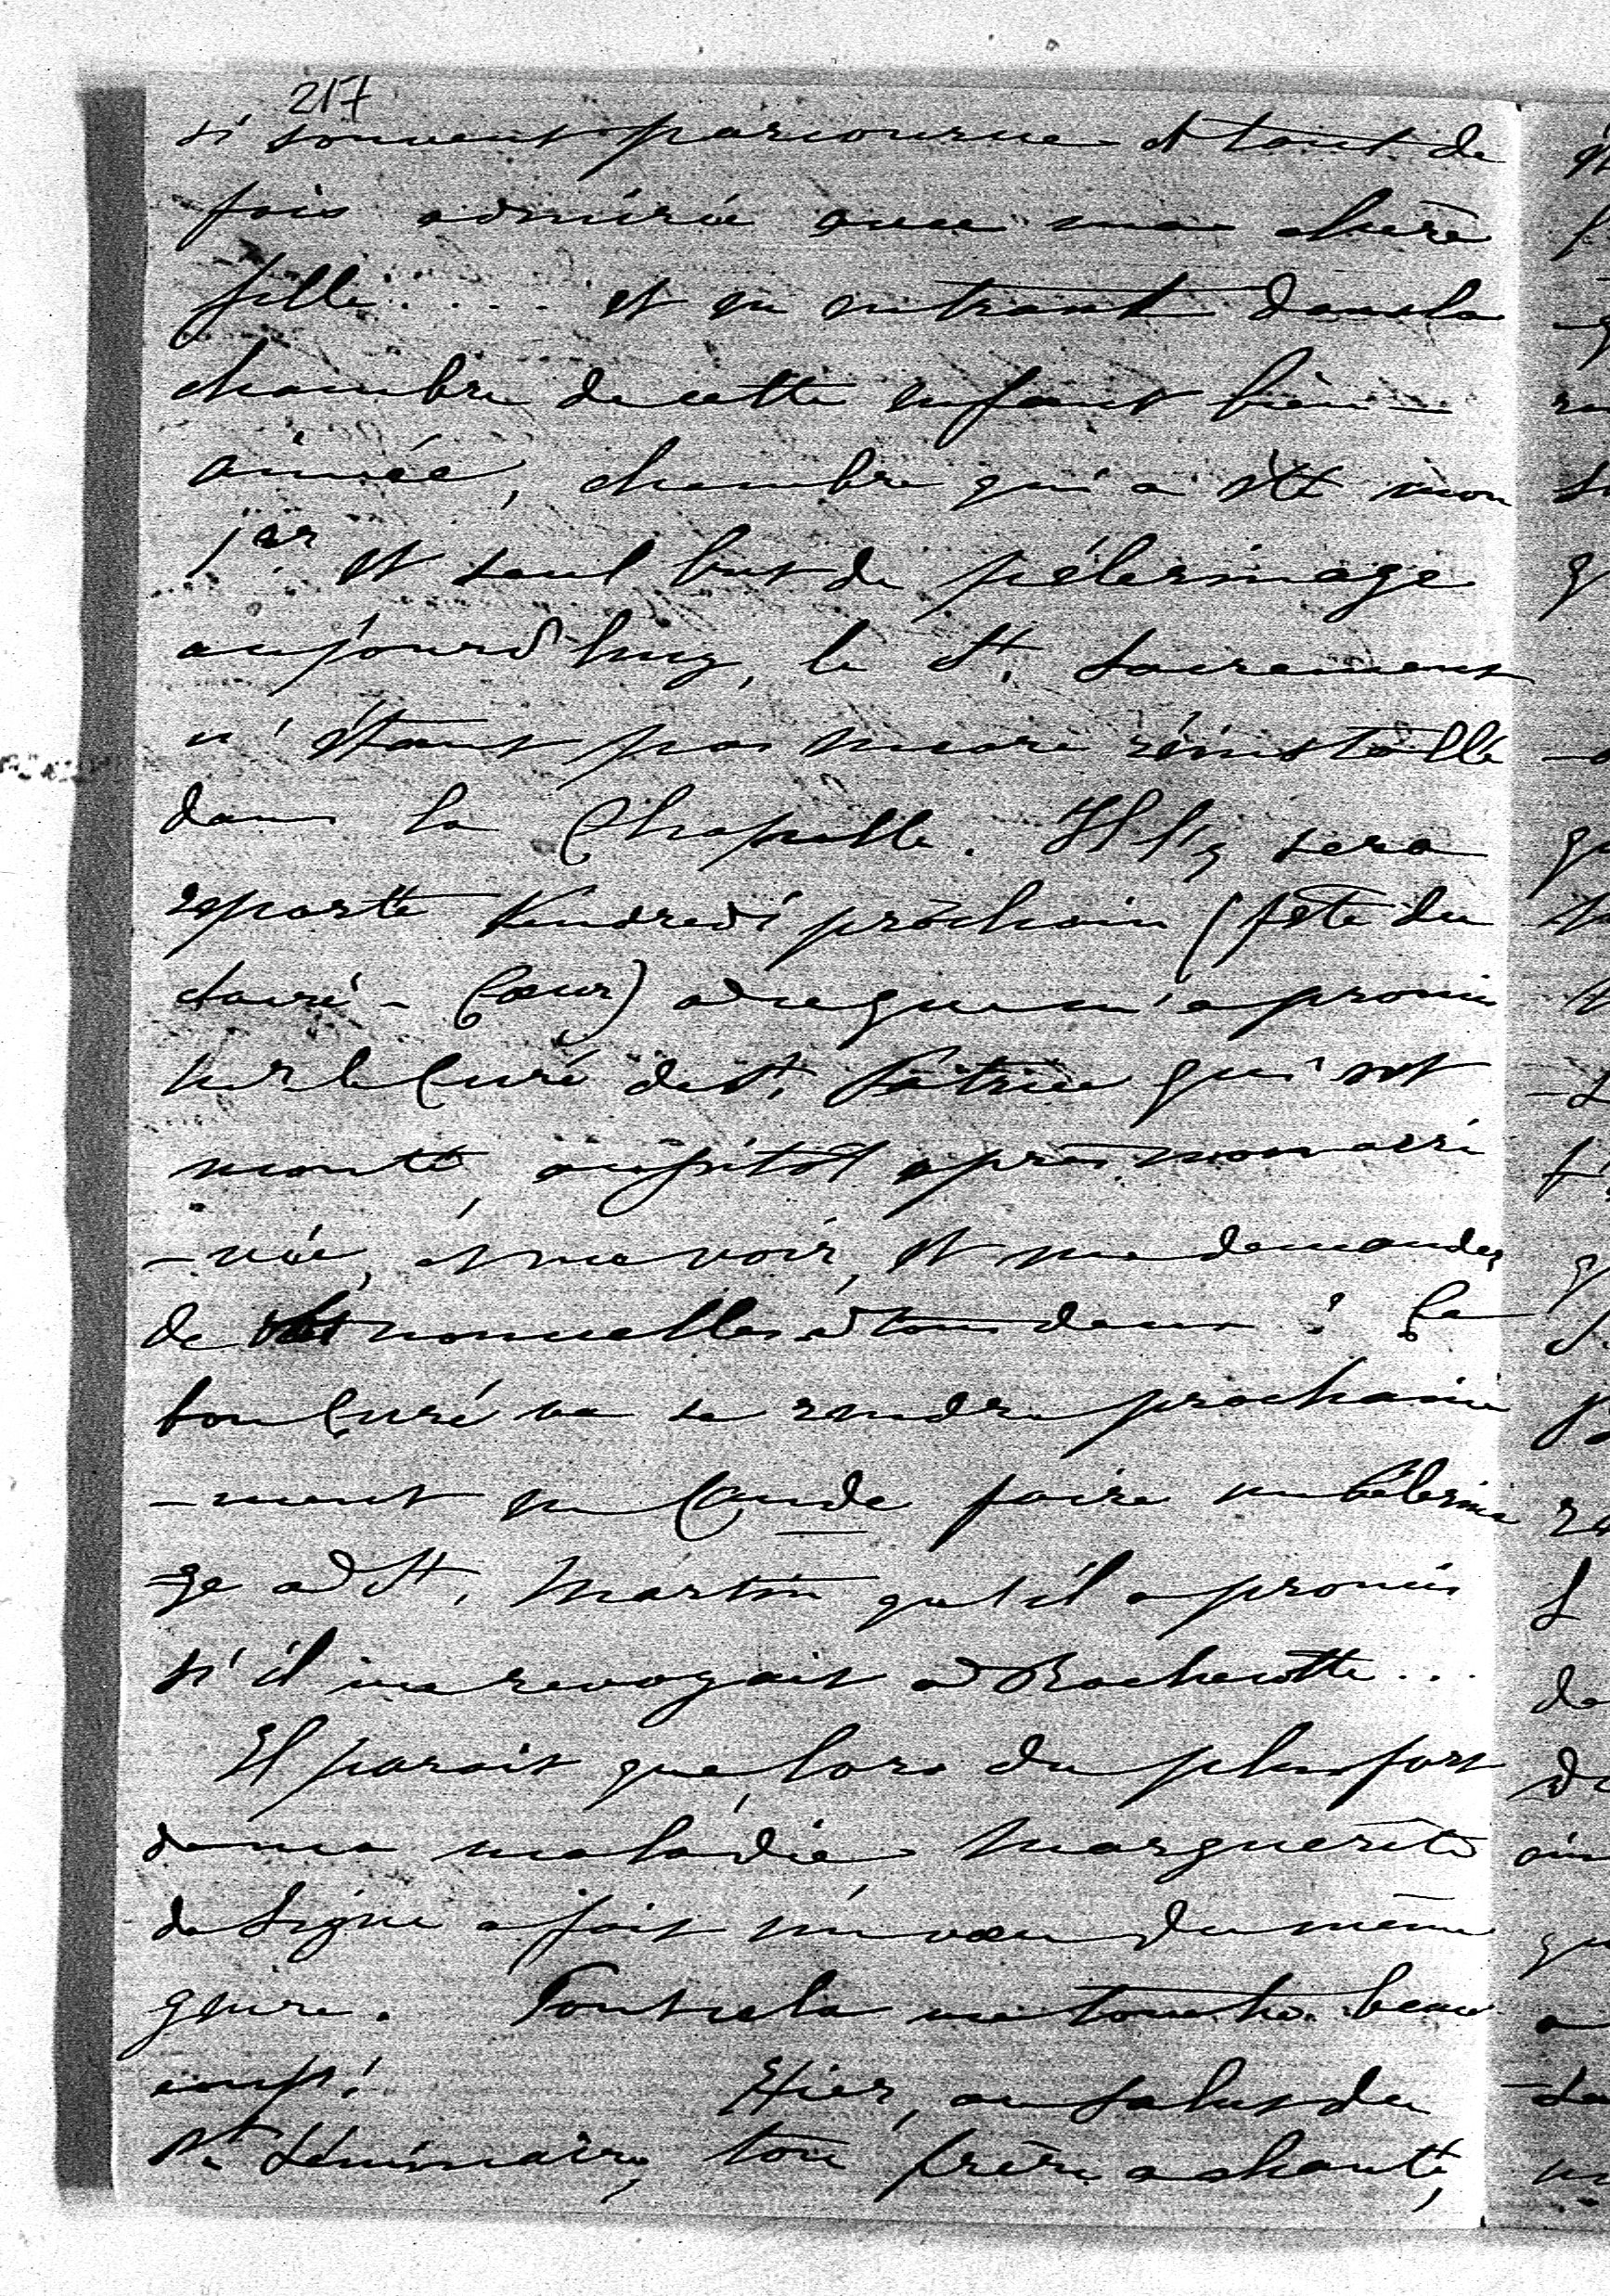 217
si souvent parcourue et tant de
fois admirée avec ma chère
fille.... et en entrant dans la
chambre de cette enfant bien-
aimée, chambre qui a été mon
1er et seul but de pélerinage
aujourd'huy, le St. Sacrement
n'étant pas encore réinstallé
dans la Chapelle. Il l'y sera
reporté Vendredi prochain (fête du
Sacré-Coeur) à ce que m'a promis
Mr le Curé de St. Patrice qui est
monté, aussitôt après mon arri
-vée, me voir, et me demander
de vos nouvelles à tous deux! Ce
bon Curé va se rendre prochaine
-ment en Cande faire un Pélerina
-ge à St. Martin qu'il a promis
s'il me revoyait à Rochecotte...
Il parait que, lors du plus fort
de ma maladie, Marguerite
de Ligne a fait un voeu du même
genre. Tout cela me touche beau
coup! Hier, au salut du
Pt Séminaire, ton frère a chanté,